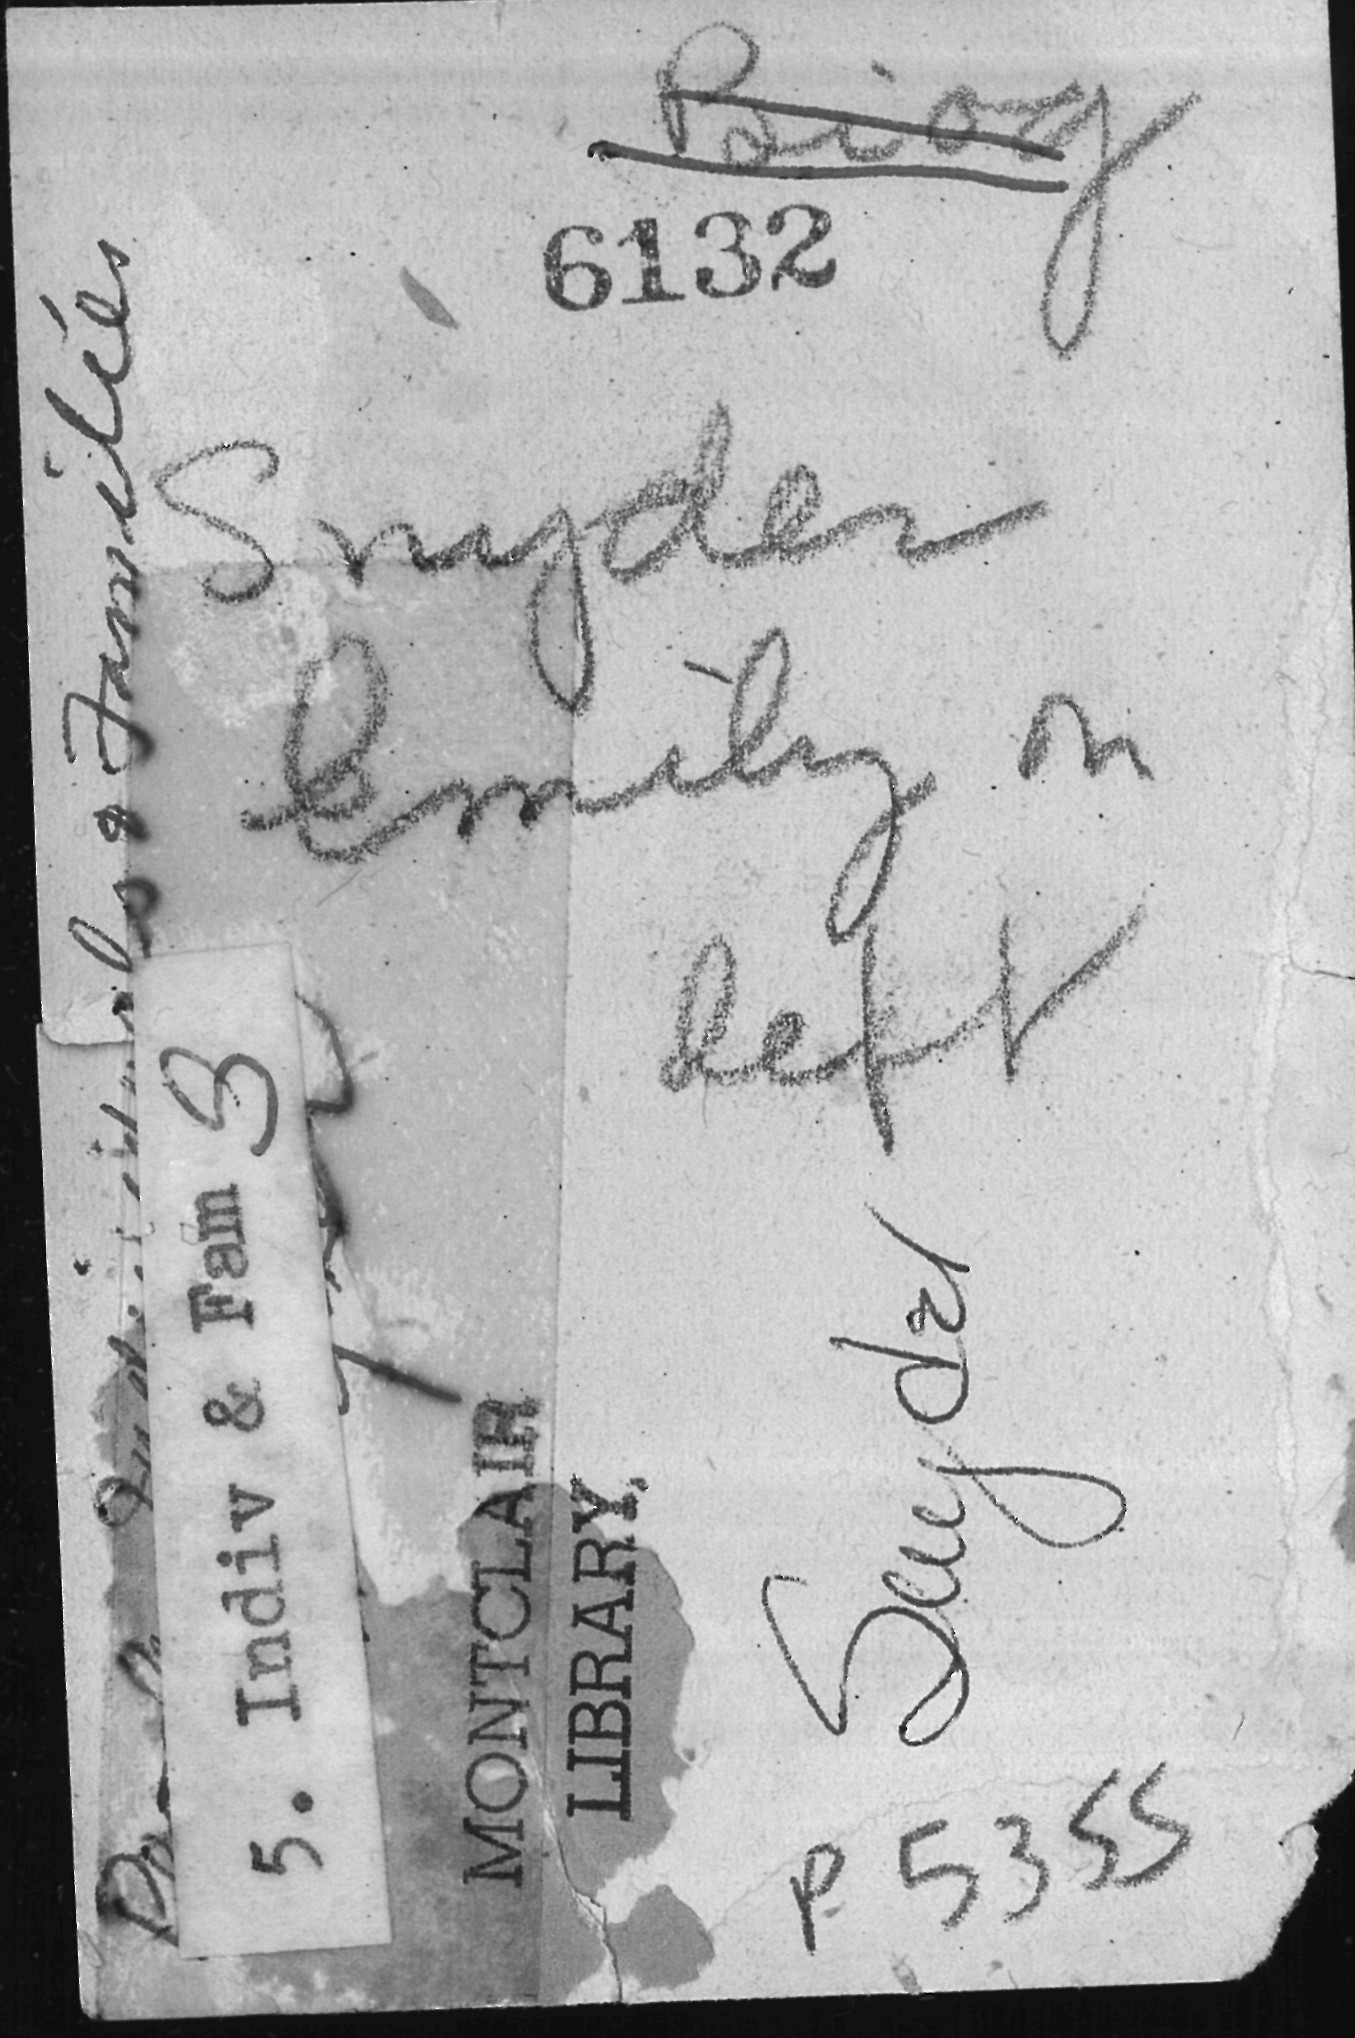 Biog
6132
Snyder
Emily on
left
Individuals & Families
5. Indiv & Fam 3
MONTCLAIR
LIBRARY.
Snyder
P 5355